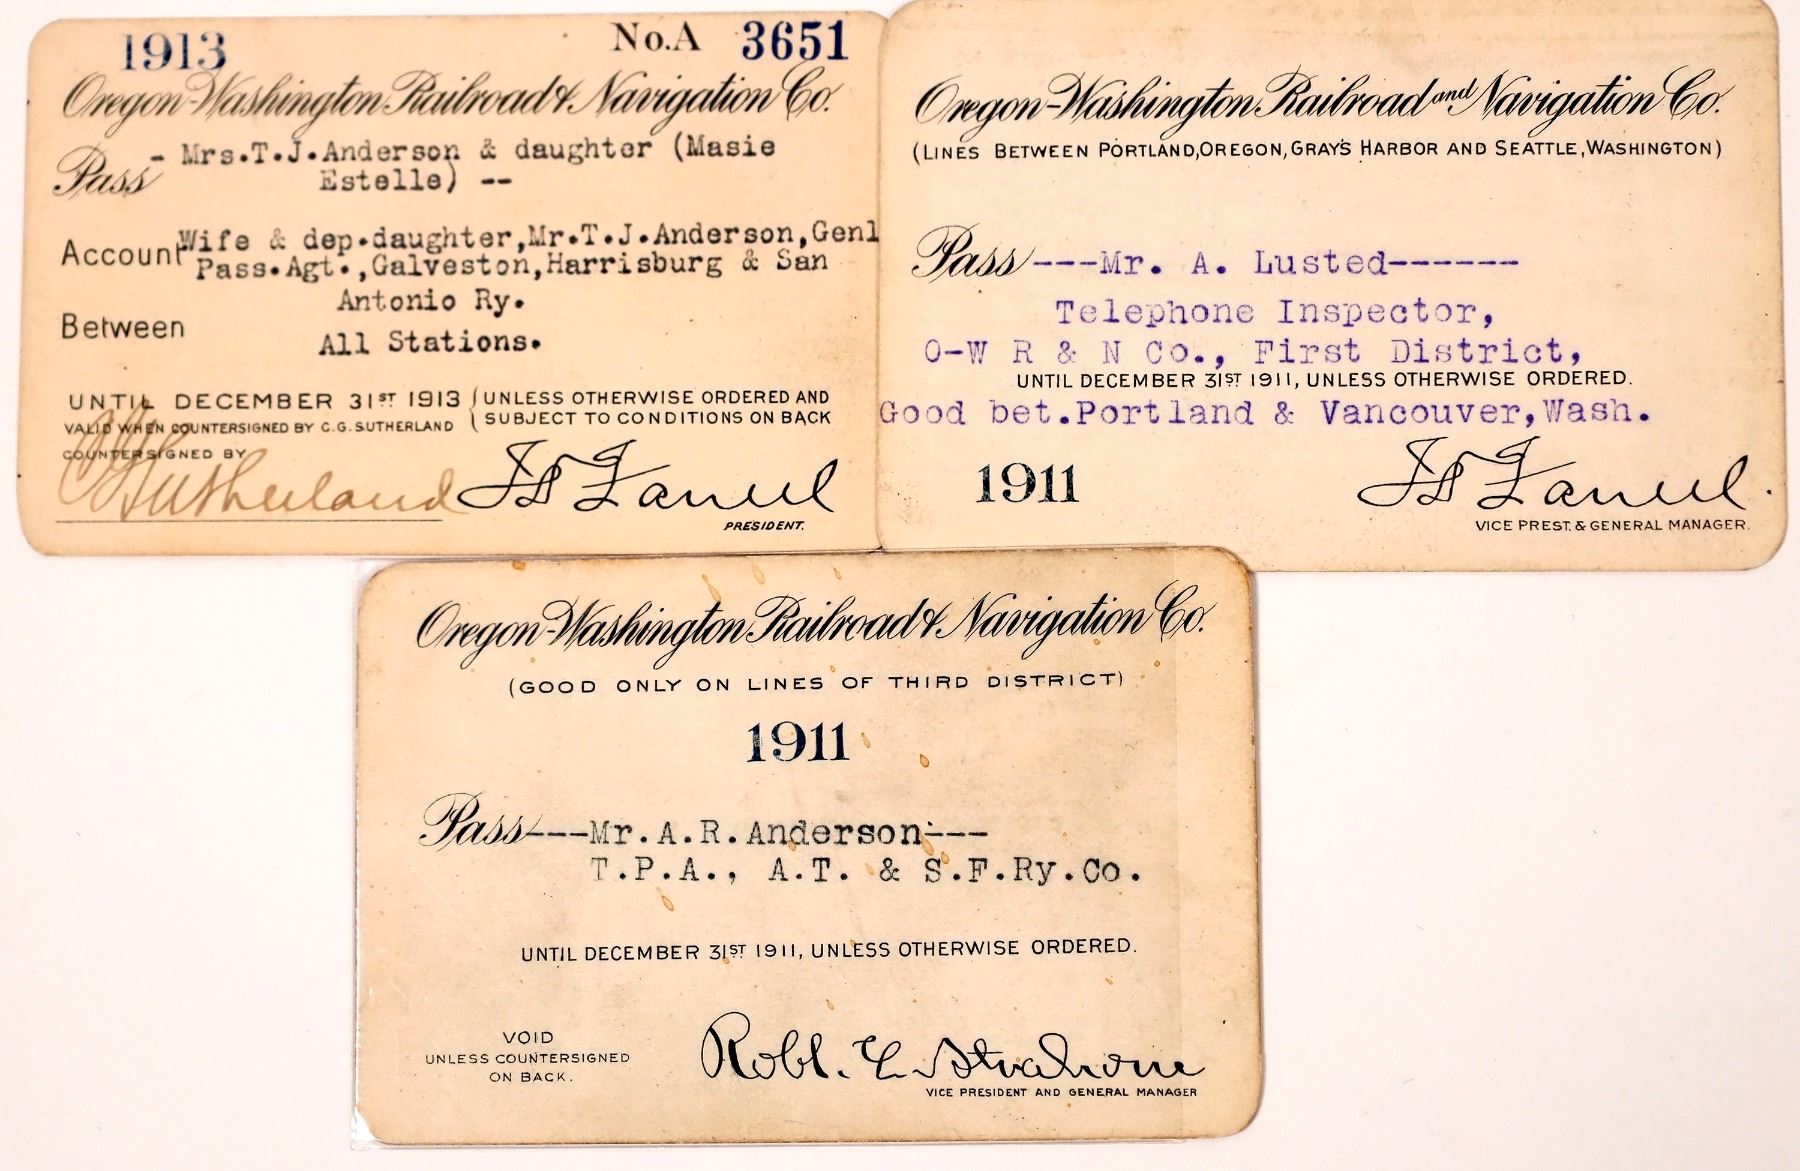 1913 No.A 3651
Oregon-Washington Railroad & Navigation Co.
Pass - Mrs.T.J.Anderson & daughter (Masie
Estelle) --
Account Wife & dep.daughter,Mr.T.J.Anderson,Genl
Pass.Agt.,Galveston,Harrisburg & San
Antonio Ry.
Between All Stations.
UNTIL DECEMBER 31ST 1913 { UNLESS OTHERWISE ORDERED AND
VALID WHEN COUNTERSIGNED BY C.G. SUTHERLAND { SUBJECT TO CONDITIONS ON BACK
COUNTERSIGNED BY
CGSutherland JD Farrell
PRESIDENT.
Oregon-Washington Railroad and Navigation Co.
(LINES BETWEEN PORTLAND, OREGON, GRAY'S HARBOR AND SEATTLE, WASHINGTON)
Pass---Mr. A. Lusted------
Telephone Inspector,
O-W R & N Co., First District,
UNTIL DECEMBER 31ST 1911, UNLESS OTHERWISE ORDERED.
Good bet.Portland & Vancouver,Wash.
1911 JD Farrell.
VICE PREST. & GENERAL MANAGER.
Oregon-Washington Railroad & Navigation Co.
(GOOD ONLY ON LINES OF THIRD DISTRICT)
1911
Pass---Mr.A.R.Anderson---
T.P.A., A.T. & S.F.Ry.Co.
UNTIL DECEMBER 31ST 1911, UNLESS OTHERWISE ORDERED.
VOID
UNLESS COUNTERSIGNED
ON BACK.
Robt. E. Strahorn
VICE PRESIDENT AND GENERAL MANAGER